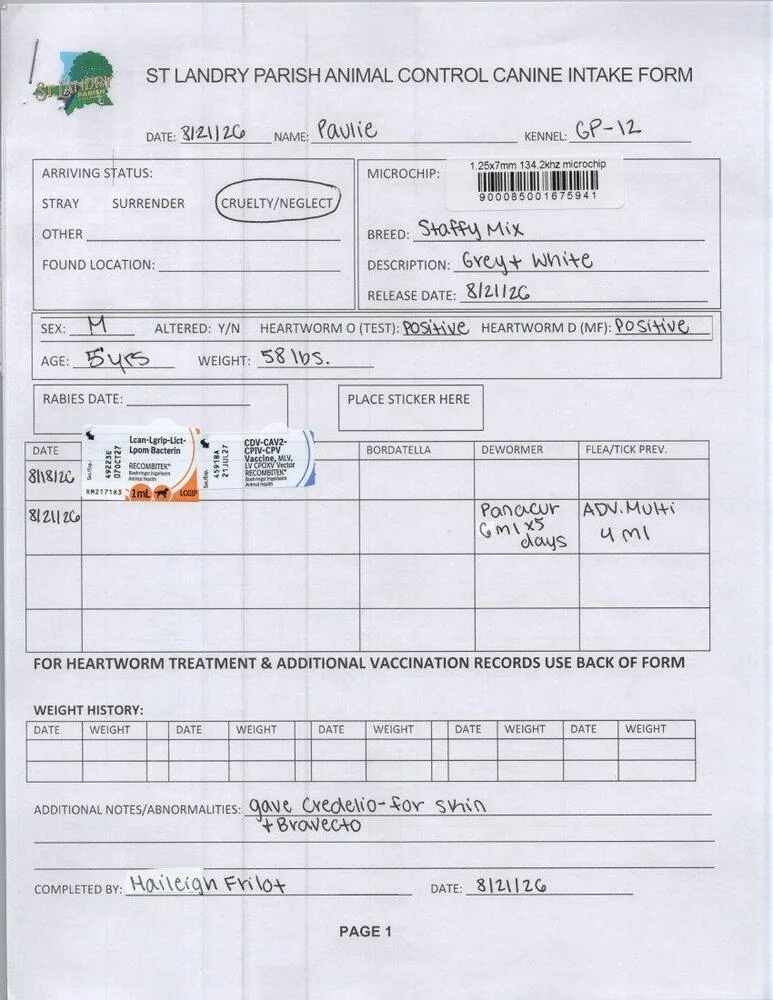 ST LANDRY
PARISH
ST LANDRY PARISH ANIMAL CONTROL CANINE INTAKE FORM
DATE: 8/21/26 NAME: Paulie KENNEL: GP-12
ARRIVING STATUS:
STRAY SURRENDER CRUELTY/NEGLECT
OTHER
FOUND LOCATION:
MICROCHIP: 1.25x7mm 134.2khz microchip
900085001675941
BREED: Staffy Mix
DESCRIPTION: Grey + White
RELEASE DATE: 8/21/26
SEX: M ALTERED: Y/N HEARTWORM O (TEST): Positive HEARTWORM D (MF): Positive
AGE: 5 yrs WEIGHT: 58 lbs.
RABIES DATE:
PLACE STICKER HERE
DATE BORDATELLA DEWORMER FLEA/TICK PREV.
8/18/26
Lcan-Lgrip-Lict-
Lpom Bacterin
RECOMBITEK®
Boehringer Ingelheim
Animal Health
49223E
07OCT27
RM2171R3 1mL LCGIP
CDV-CAV2-
CPIV-CPV
Vaccine, MLV,
LV CPOXV Vector
RECOMBITEK®
Boehringer Ingelheim
Animal Health
45918A
21JUL27
8/21/26 Panacur ADV. Multi
6 ml x5 4 ml
days
FOR HEARTWORM TREATMENT & ADDITIONAL VACCINATION RECORDS USE BACK OF FORM
WEIGHT HISTORY:
DATE WEIGHT DATE WEIGHT DATE WEIGHT DATE WEIGHT DATE WEIGHT
ADDITIONAL NOTES/ABNORMALITIES: gave Credelio-for skin
+ Bravecto
COMPLETED BY: Haileigh Frilot DATE: 8/21/26
PAGE 1